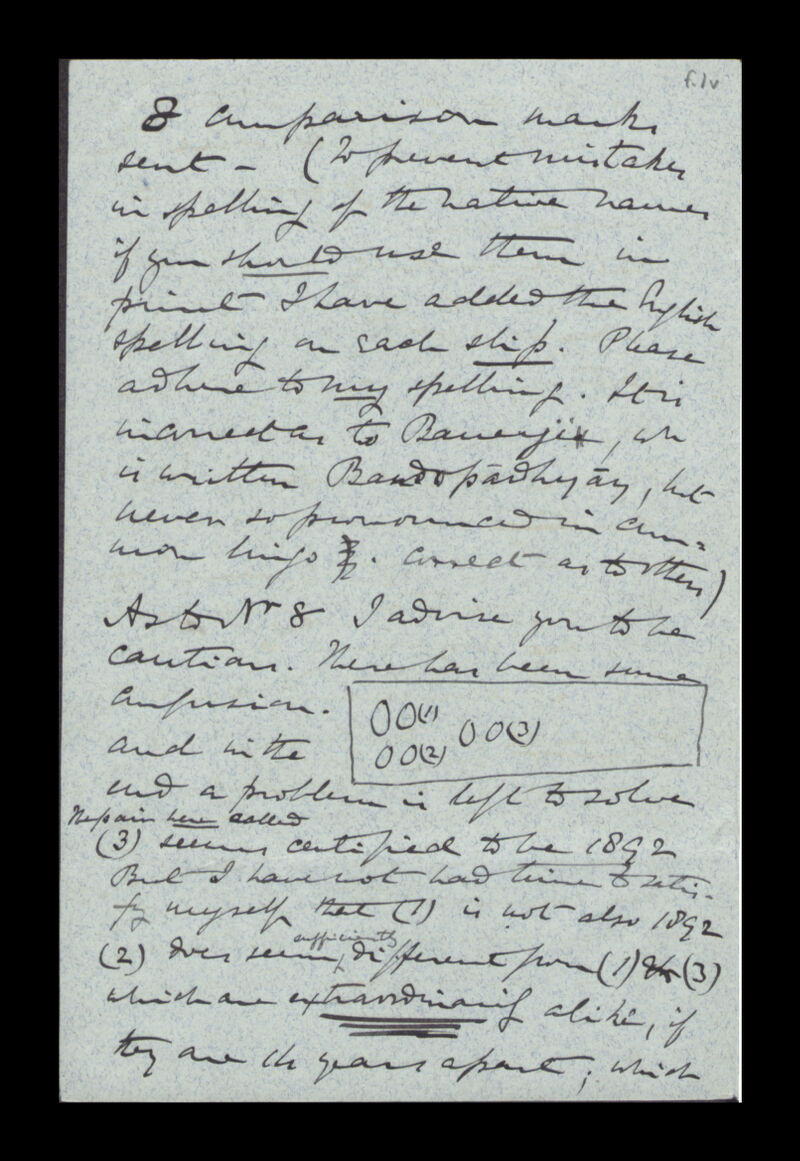 f.1v
8 comparison marks
sent - (To prevent mistakes
in spelling of the native names
if you should use them in
print I have added the English
spelling on each slip. Please
adhere to my spelling. It is
incorrect as to Banerji, wh
is written Bandopādhyāy, but
never so pronounced in com=
mon lingo. Correct as to others)
As to Nr 8 I advise you to be
cautious. There has been some
confusion.
00(1)
00(2) 00(3)
and in the
end a problem is left to solve
The pair here called
(3) seems certified to be 1892
But I have not had time to satis-
fy myself that (1) is not also 1892
(2) does seem sufficiently different from (1) & (3)
which are extraordinarily alike, if
they are 14 years apart; which